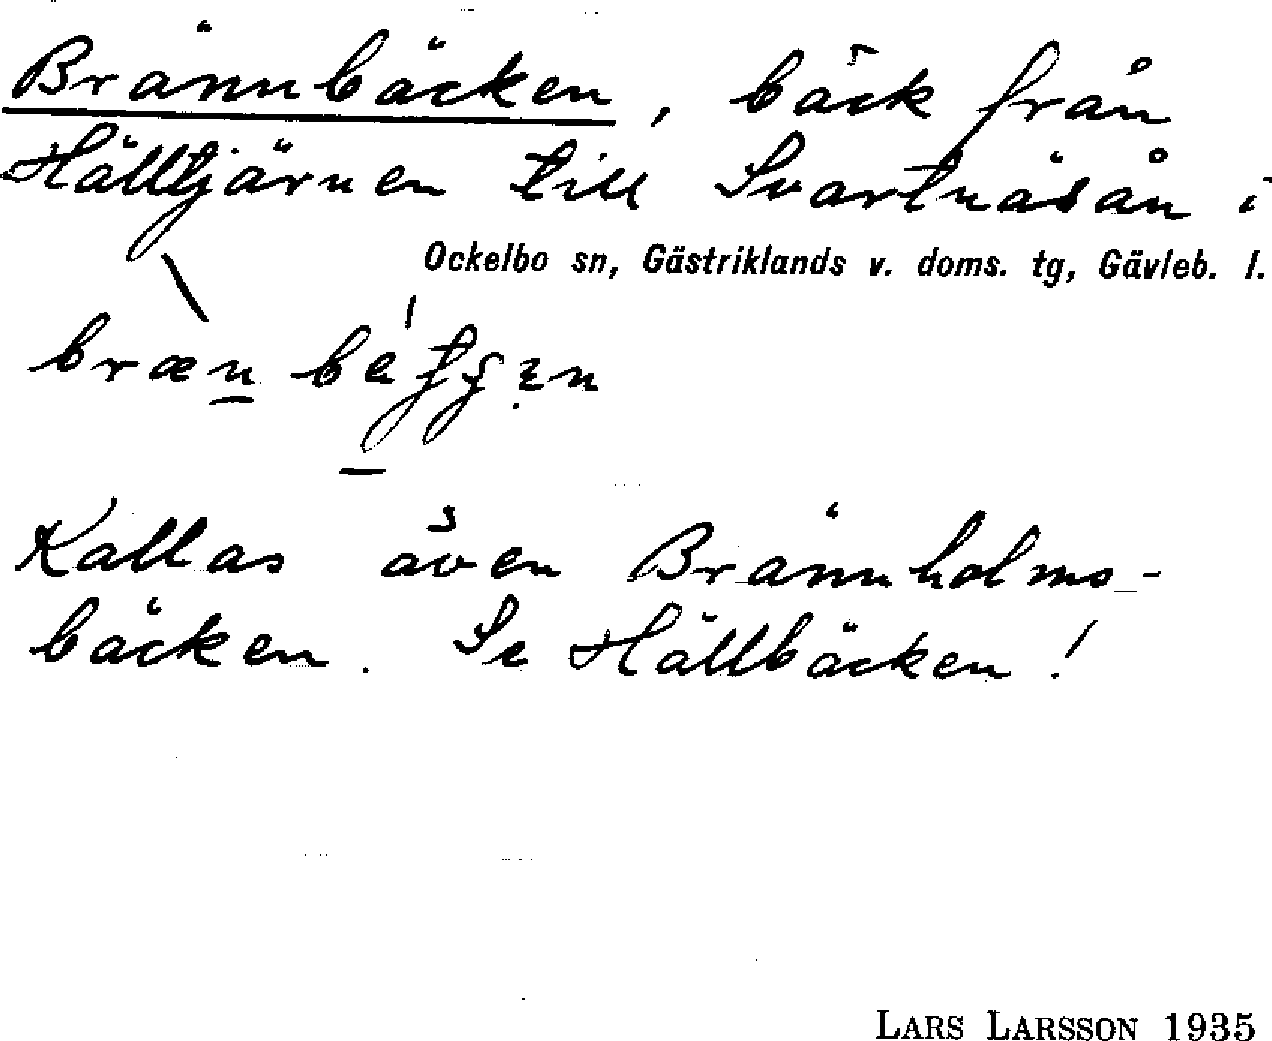 Brännbäcken, bäck från
Hälltjärnen till Svartnäsån i
Ockelbo sn, Gästriklands v. doms. tg, Gävleb. l.
Kallas även Brännholms-
bäcken. Se Hällbäcken!
LARS LARSSON 1935